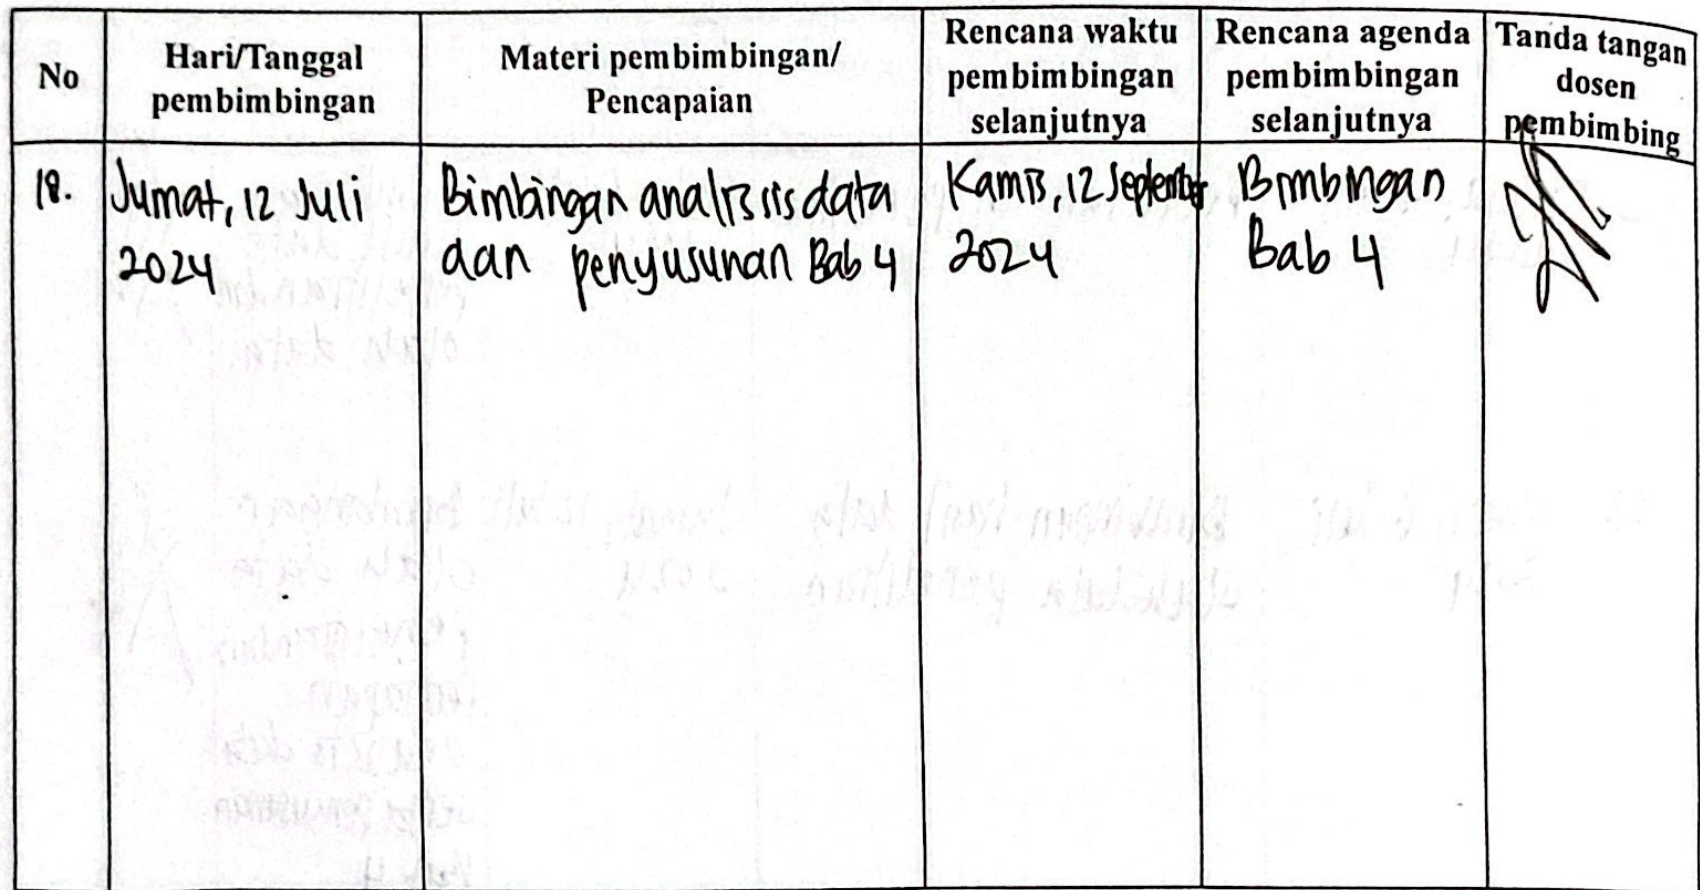 No
Hari/Tanggal
pembimbingan
Materi pembimbingan/
Pencapaian
Rencana waktu
pembimbingan
selanjutnya
Rencana agenda
pembimbingan
selanjutnya
Tanda tangan
dosen
pembimbing
18.
Jumat, 12 Juli
2024
Bimbingan analisis data
dan penyusunan Bab 4
Kamis, 12 September
2024
Bimbingan
Bab 4